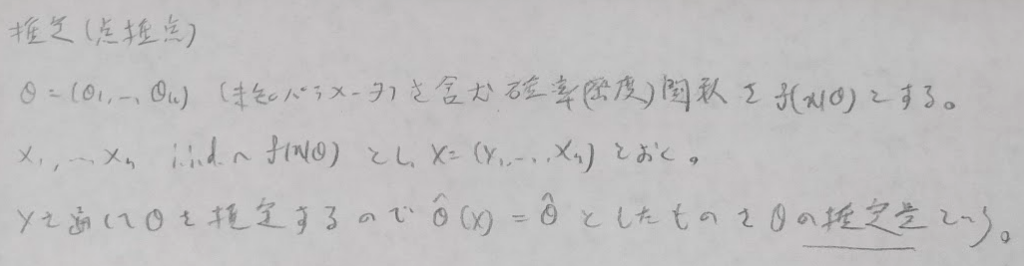 推定(点推点)
θ=(θ1,…,θk) (未知パラメータ)を含む確率(密度)関数をf(x|θ)とする。
X1,…Xn i.i.d.~f(x|θ)とし、X=(X1,…,Xn)とおく。
Xを通してθを推定するのでθ̂(X)=θ̂としたものをθの推定量という。